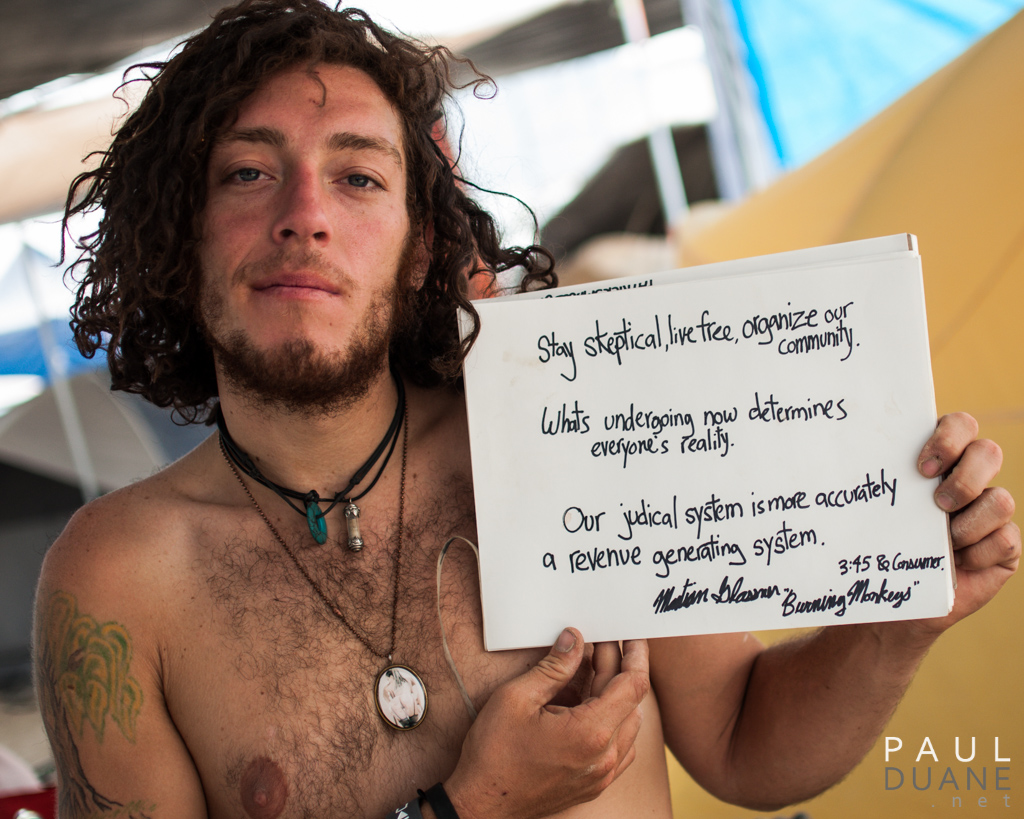 Stay skeptical, live free, organize our
community.
Whats undergoing now determines
everyone's reality.
Our judical system is more accurately
a revenue generating system.
3:45 & Consumer.
"Burning Monkeys"
PAUL
DUANE
.net